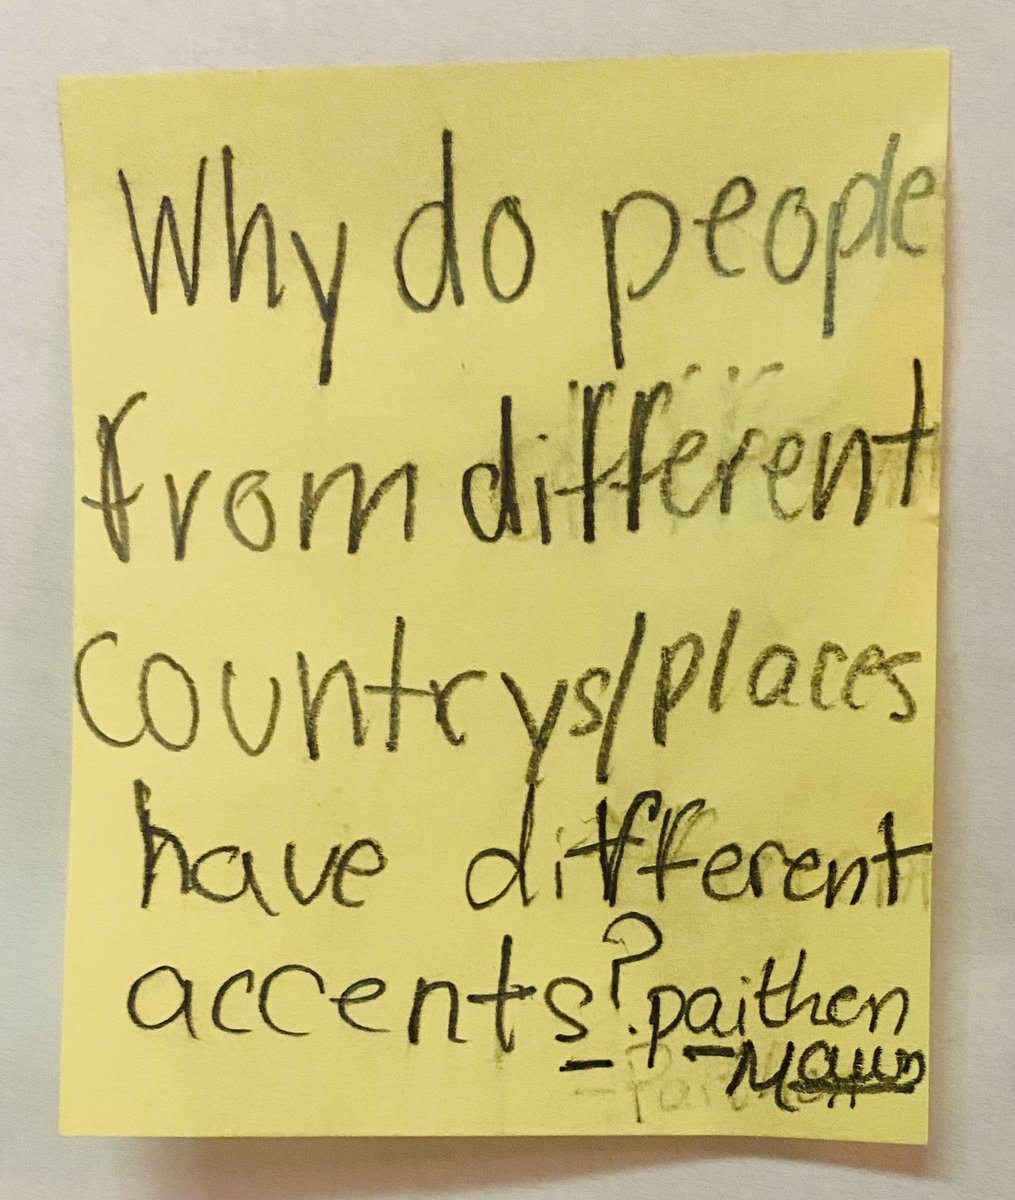 Why do people
from different
countrys/places
have different
accents? paithen